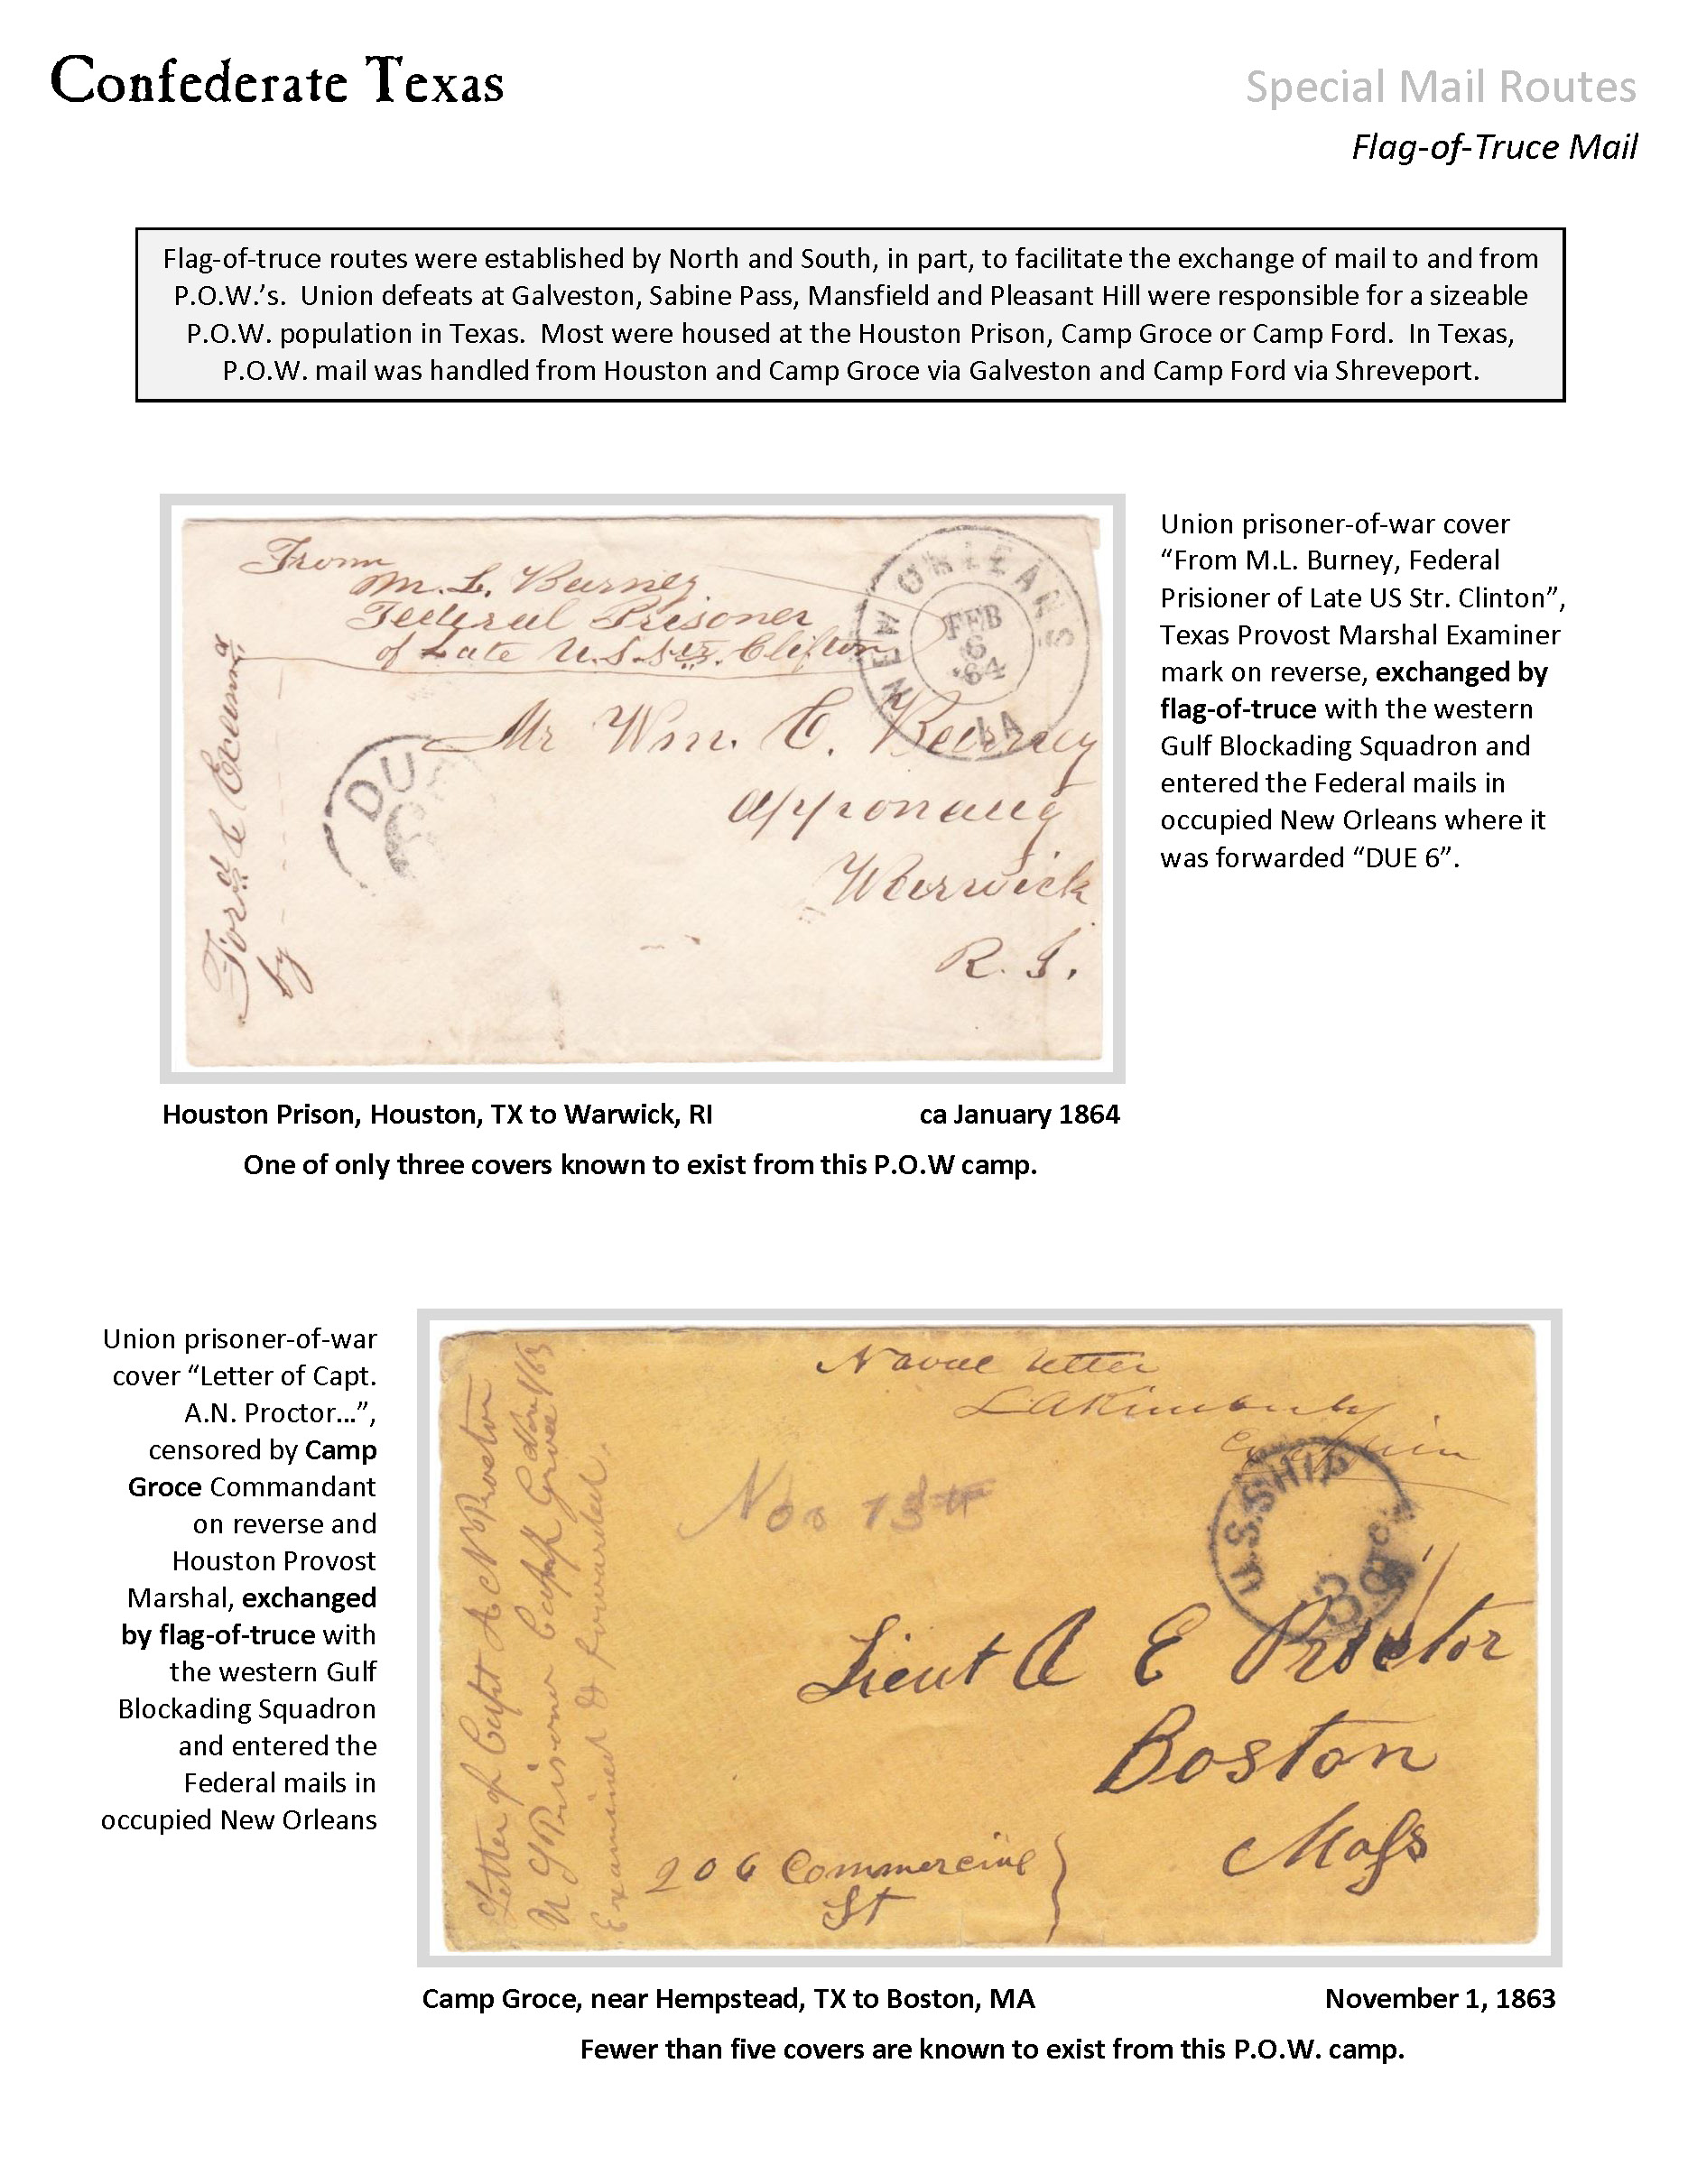 Confederate Texas
Special Mail Routes
Flag-of-Truce Mail
Flag-of-truce routes were established by North and South, in part, to facilitate the exchange of mail to and from
P.O.W.’s.  Union defeats at Galveston, Sabine Pass, Mansfield and Pleasant Hill were responsible for a sizeable
P.O.W. population in Texas.  Most were housed at the Houston Prison, Camp Groce or Camp Ford.  In Texas,
P.O.W. mail was handled from Houston and Camp Groce via Galveston and Camp Ford via Shreveport.
From
M. L. Burney
Federal Prisoner
of Late U.S. Str. Clifton
NEW ORLEANS
FEB
6
'64
LA
DUE
6
Mr Wm. C. Burney
Apponaug
Warwick
R. I.
Forwd
by
Union prisoner-of-war cover
“From M.L. Burney, Federal
Prisioner of Late US Str. Clinton”,
Texas Provost Marshal Examiner
mark on reverse, exchanged by
flag-of-truce with the western
Gulf Blockading Squadron and
entered the Federal mails in
occupied New Orleans where it
was forwarded “DUE 6”.
Houston Prison, Houston, TX to Warwick, RI
ca January 1864
One of only three covers known to exist from this P.O.W camp.
Union prisoner-of-war
cover “Letter of Capt.
A.N. Proctor…”,
censored by Camp
Groce Commandant
on reverse and
Houston Provost
Marshal, exchanged
by flag-of-truce with
the western Gulf
Blockading Squadron
and entered the
Federal mails in
occupied New Orleans
Letter of Capt A N Proctor
U S Prisoner Camp Groce
Examined & forwarded.
Naval letter
Nov 13th
U.S. SHIP
3 CTS
Lieut A E Proctor
Boston
Mass
206 Commercial
St
Camp Groce, near Hempstead, TX to Boston, MA
November 1, 1863
Fewer than five covers are known to exist from this P.O.W. camp.